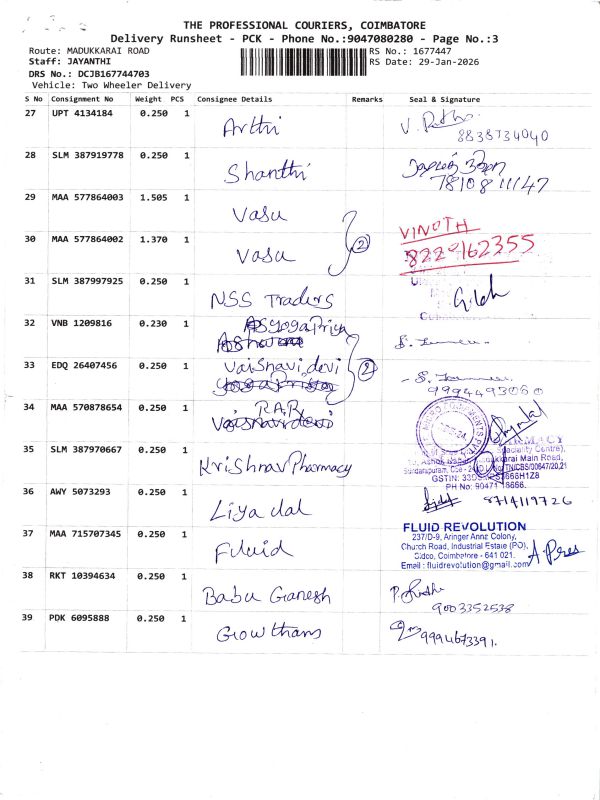 THE PROFESSIONAL COURIERS, COIMBATORE
Delivery Runsheet - PCK - Phone No.:9047080280 - Page No.:3
Route: MADUKKARAI ROAD RS No.: 1677447
Staff: JAYANTHI RS Date: 29-Jan-2026
DRS No.: DCJB167744703
Vehicle: Two Wheeler Delivery
S No Consignment No Weight PCS Consignee Details Remarks Seal & Signature
27 UPT 4134184 0.250 1 Arthi
8838734040
28 SLM 387919778 0.250 1 Shanthi
7810811147
29 MAA 577864003 1.505 1 Vasu
VINOTH
30 MAA 577864002 1.370 1 Vasu 2 8220162355
31 SLM 387997925 0.250 1 NSS Traders
32 VNB 1209816 0.230 1 Yoga Priya
33 EDQ 26407456 0.250 1 Vaishnavi devi 2
9994493060
34 MAA 570878654 0.250 1 R.A.R
35 SLM 387970667 0.250 1 Krishnav Pharmacy
Main Road,
GSTIN:
PH No: 90471 18666.
36 AWY 5073293 0.250 1 Liya dal 8714119726
37 MAA 715707345 0.250 1 Fluid
FLUID REVOLUTION
237/D-9, Aringer Anna Colony,
Church Road, Industrial Estate (PO),
Sidco, Coimbatore - 641 021.
Email : fluidrevolution@gmail.com
38 RKT 10394634 0.250 1 Babu Ganesh
9003352538
39 PDK 6095888 0.250 1 Gowtham 9994673391.